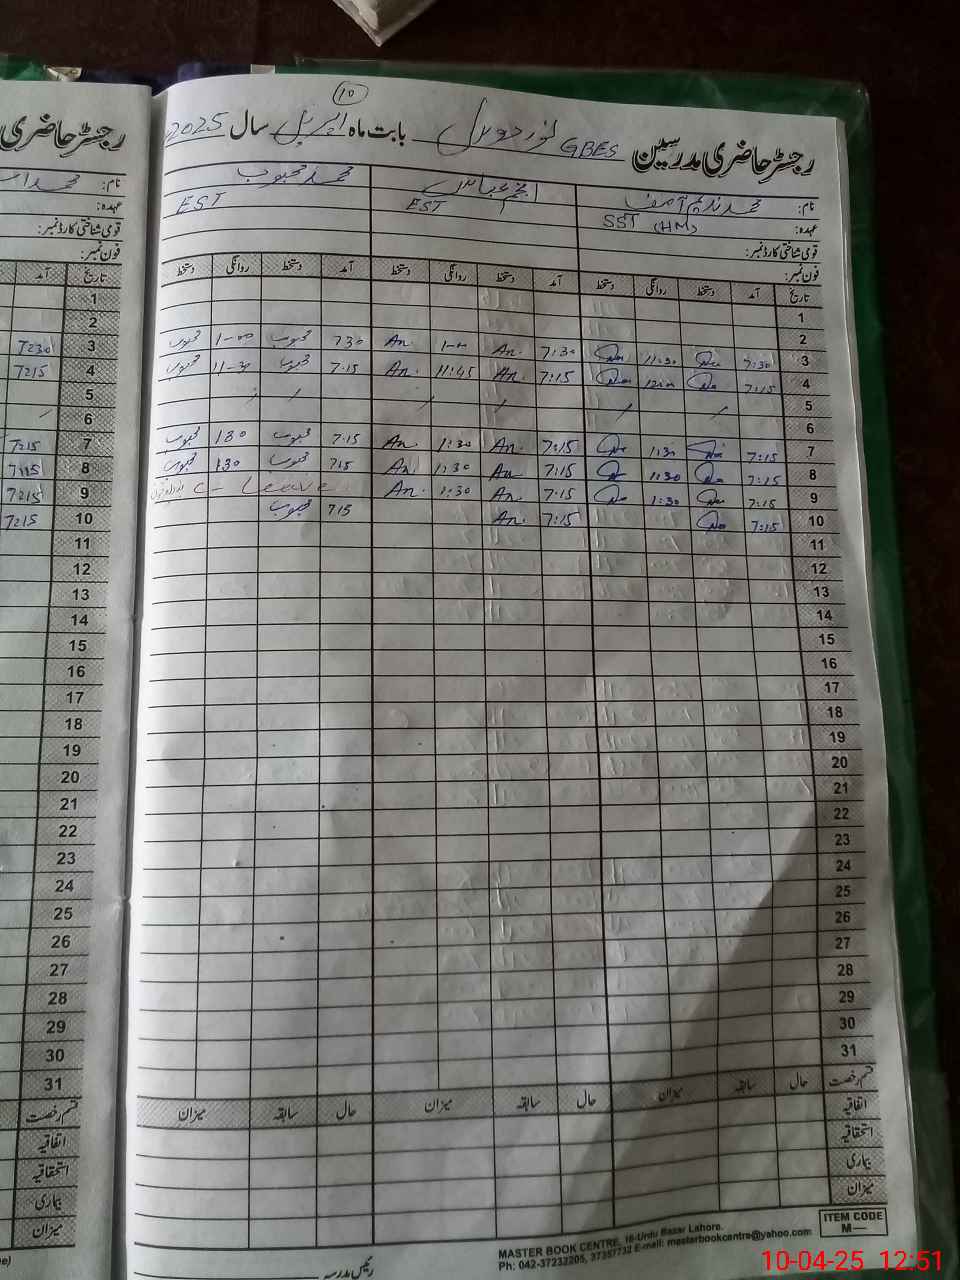 10
رجسٹر حاضری مدرسین GBES بابت ماہ اپریل سال 2025
نام: محمد ندیم آصف انجم عباس محمد محبوب
عہدہ: SST (HM) EST EST
قومی شناختی کارڈ نمبر:
فون نمبر:
تاریخ آمد دستخط روانگی دستخط آمد دستخط روانگی دستخط آمد دستخط روانگی دستخط
1
2
3 7:30 11:30 7:30 An. 1-00 An. 730 محبوب 1-00 محبوب
4 7:15 12:00 7:15 An. 11:45 An. 7:15 محبوب 11-30 محبوب
5
6
7 7:15 1:30 7:15 An. 1:30 An. 7:15 محبوب 130 محبوب
8 7:15 1:30 7:15 An. 1:30 An. 715 محبوب 130 محبوب
9 7:15 1:30 7:15 An. 1:30 An. C- Leave
10 7:15 7:15 An. 715 محبوب
11
12
13
14
15
16
17
18
19
20
21
22
23
24
25
26
27
28
29
30
31
قسم رخصت حال سابقہ میزان حال سابقہ میزان حال سابقہ میزان
اتفاقیہ
استحقاقیہ
بیماری
میزان
ITEM CODE
M—
رئیس مدرسہ
MASTER BOOK CENTRE, 16-Urdu Bazar Lahore.
Ph: 042-37232205, 37357732 E-mail: masterbookcentre@yahoo.com
رجسٹر حاضری
نام: محمد
عہدہ:
قومی شناختی کارڈ نمبر:
فون نمبر:
تاریخ آمد
1
2
3 7:30
4 7:15
5
6
7 7:15
8 7:15
9 7:15
10 7:15
11
12
13
14
15
16
17
18
19
20
21
22
23
24
25
26
27
28
29
30
31
قسم رخصت
اتفاقیہ
استحقاقیہ
بیماری
میزان
10-04-25 12:51